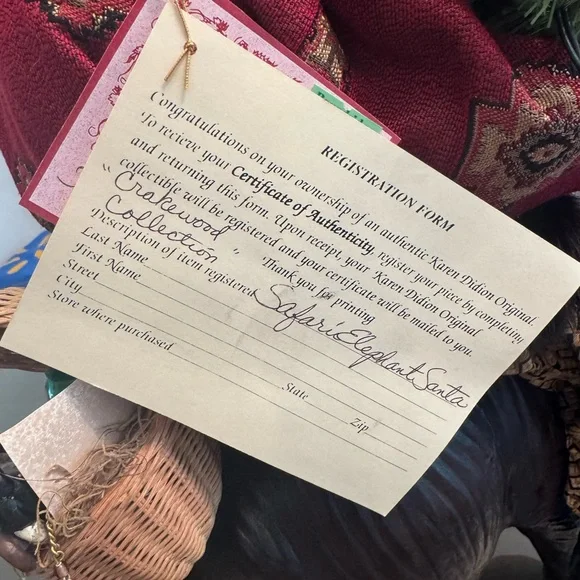 REGISTRATION FORM
Congratulations on your ownership of an authentic Karen Didion Original.
To recieve your Certificate of Authenticity, register your piece by completing
and returning this form. Upon receipt, your Karen Didion Original
collectible will be registered and your certificate will be mailed to you.
Thank you for printing
"Crakewood
Collection"
Description of item registered Safari Elephant Santa
Last Name
First Name
Street
City State Zip
Store where purchased